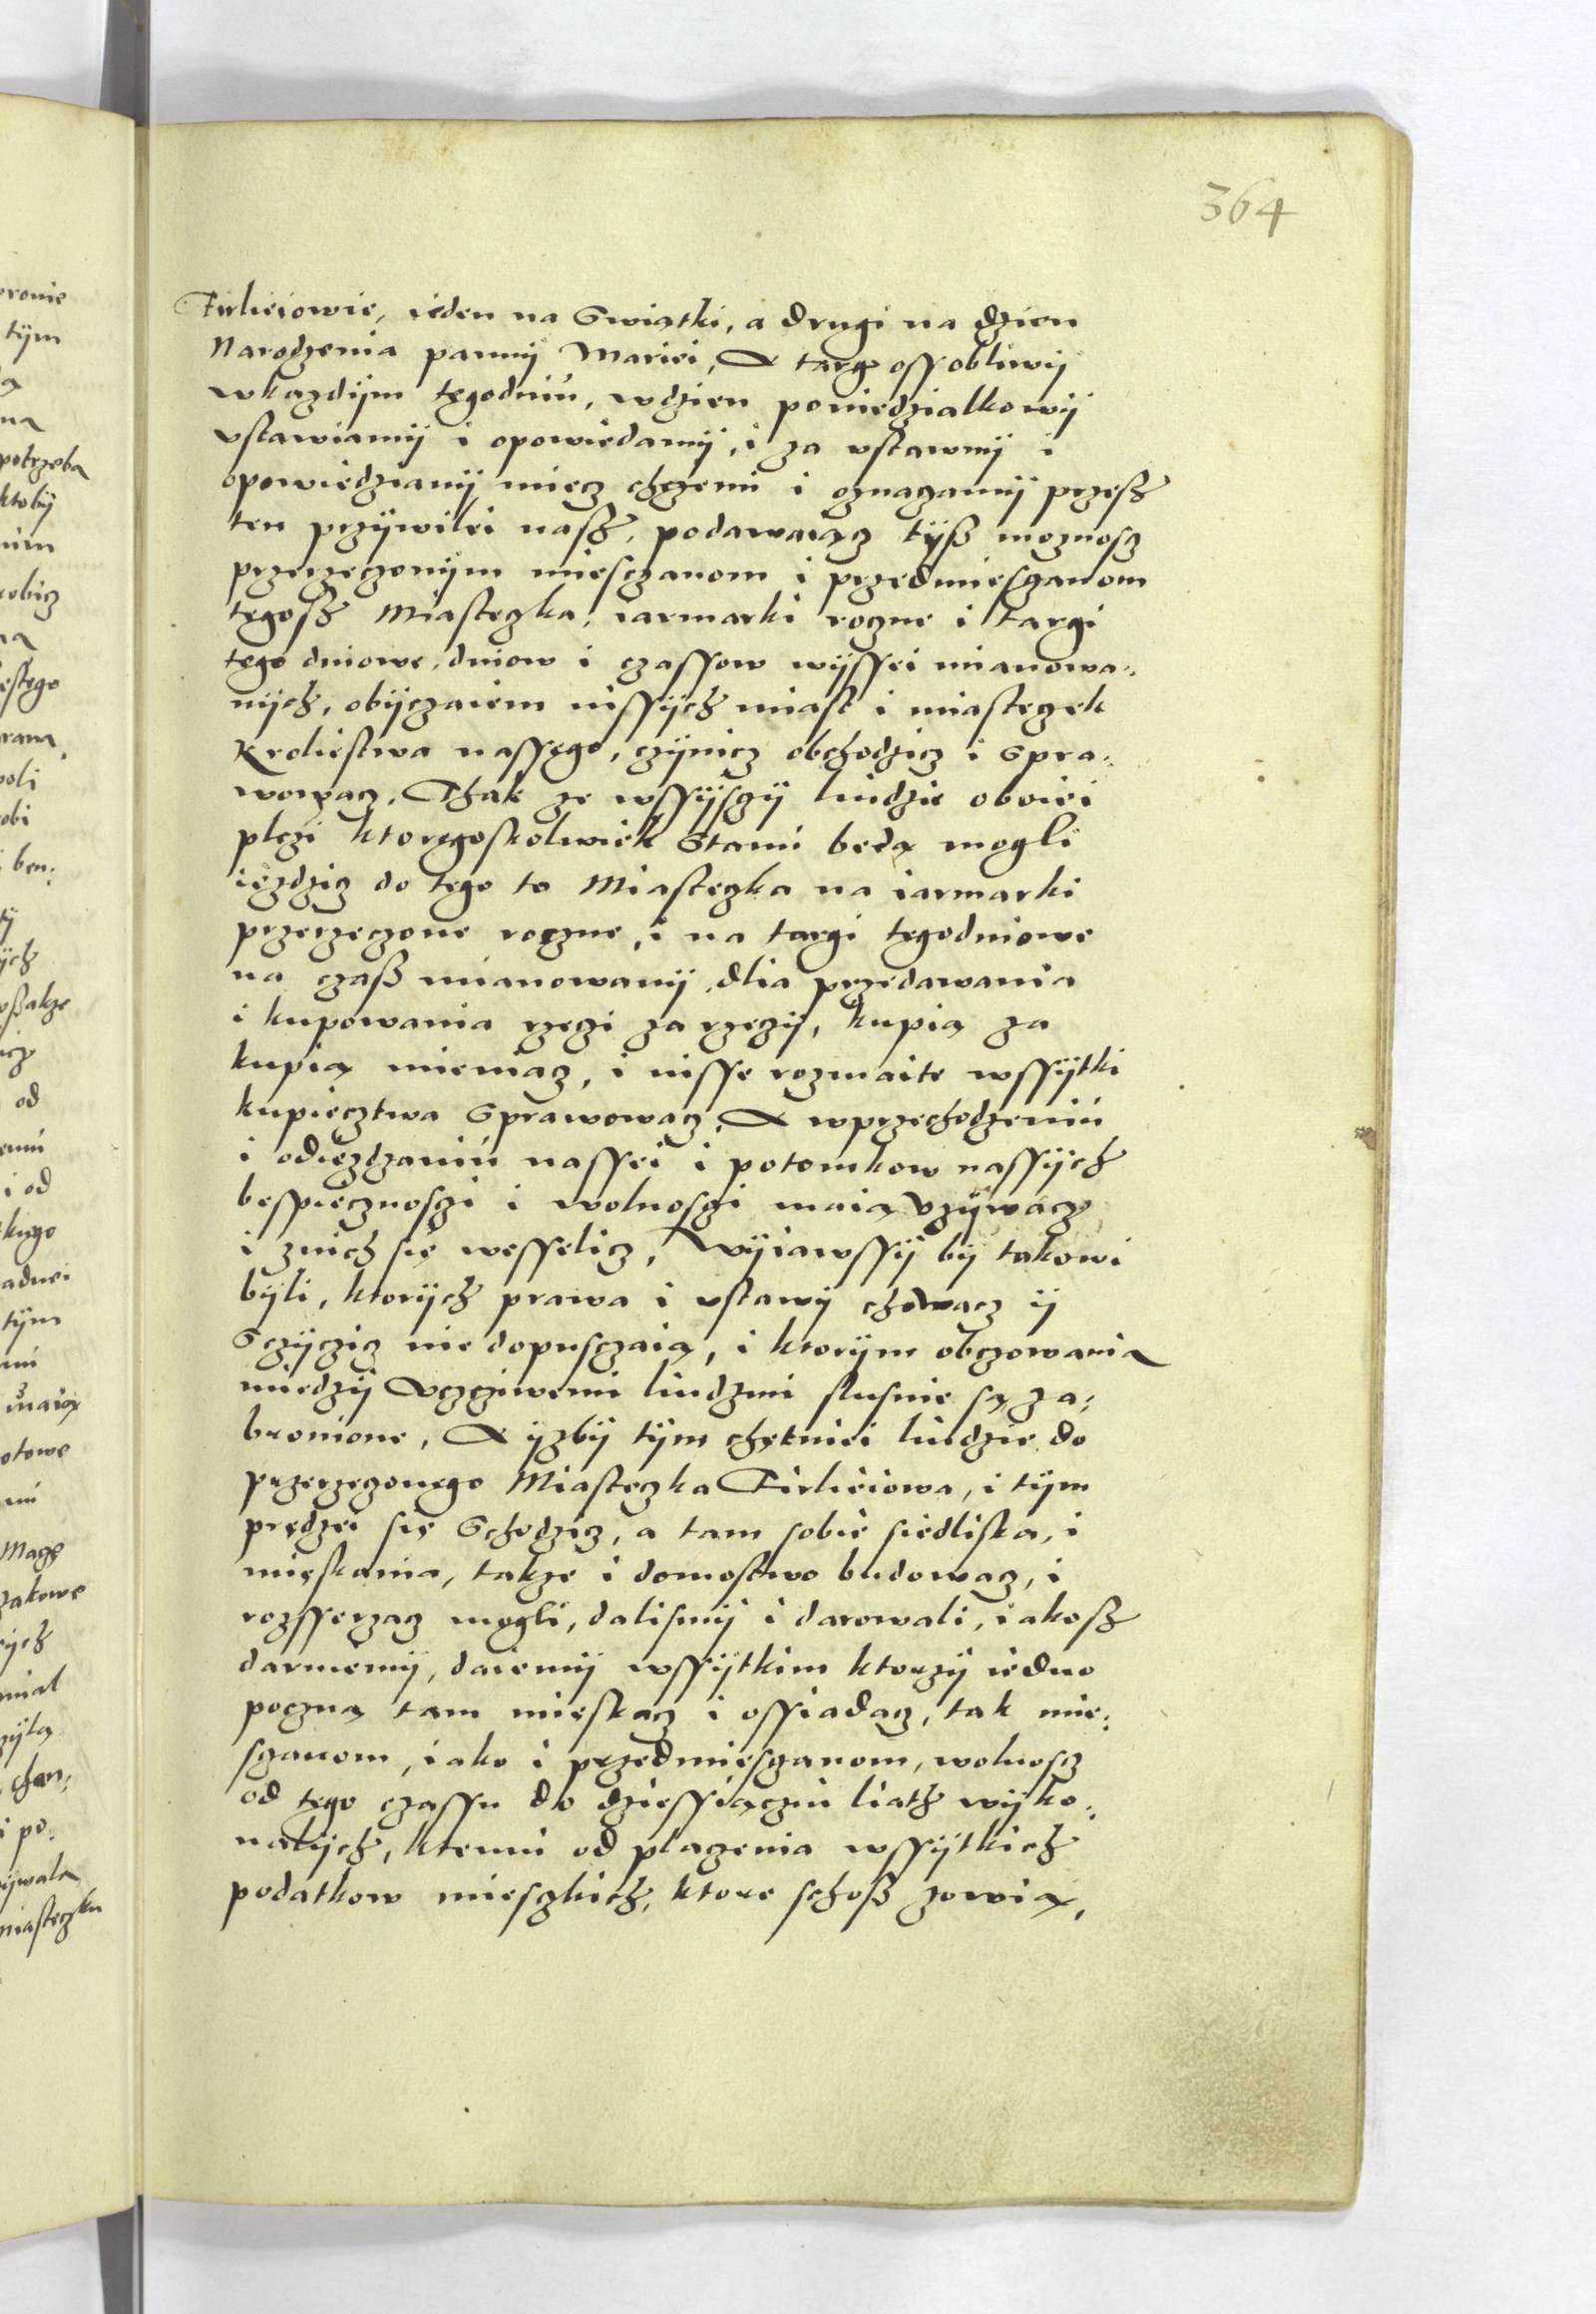 364
Firlieiowie, ieden na Swiątki, a drugi na dzien
Narodzenia panny Mariei, A targ ossobliwÿ
wkazdÿm tegodniu, wdzien poniedzialkowÿ
vstawiamÿ i opowiedamÿ, i za vstawnÿ i
opowiedzianÿ miecz chczemi i oznazamÿ przesz
ten przÿwilei nasz, podawaiącz tÿß moznosz
przerzeczonÿm miesczanom i przedmiesczanom
tegosz Miasteczka, iarmarki roczne i targi
tego dniowe, dniow i czassow wÿssei mianowa„
nÿch, obÿczaiem inssÿch miast i miasteczek
Kroliestwa nassego, czÿnicz obchodzicz i Spra„
wowacz. Thak ze wssÿsczÿ liudzie oboiei
plczi ktoregoskolwiek Stanu będą mogli
iezdzicz do tego to Miasteczka na iarmarki
przerzeczone roczne, i na targi tegodniowe
na czaß mianowanÿ, dlia przedawania
i kupowania rzeczi za rzeczÿ, kupią za
kupią mieniacz, i insse rozmaite wssÿtki
kupiecztwa Sprawowacz, A wprzechodzeniu
i odiezdzaniu nassei i potomkow nassÿch
bespiecznosczi i wolnosczi maią vzÿwacz
i znich się wesselicz, Wÿiawssÿ bÿ takowi
bÿli, ktorÿch prawa i vstawÿ chowacz ÿ
Sczÿczicz nie dopusczaią, i ktorÿm obczowania
miedzÿ vczciwemi liudzmi slusnie są za„
bronione, A ÿzbÿ tÿm chętniei liudzie do
przerzeczonego Miasteczka Firlieiowa, i tÿm
prędzei się Schodzicz, a tam sobie siedliska, i
mieskania, takze i domostwo budowacz, i
rozsserzacz mogli, dalismÿ i darowali, iakosz
darmemÿ, daiemÿ wssÿtkim ktorzÿ iedno
poczną tam mieskacz i ossiadacz, tak mie„
sczanom, iako i przedmiesczanom, wolnoscz
od tego czassu do dziessiącziu liath wÿko„
nalÿch, ktemu od placzenia wssÿtkich
podatkow mieszkich, ktore schoß zowią,